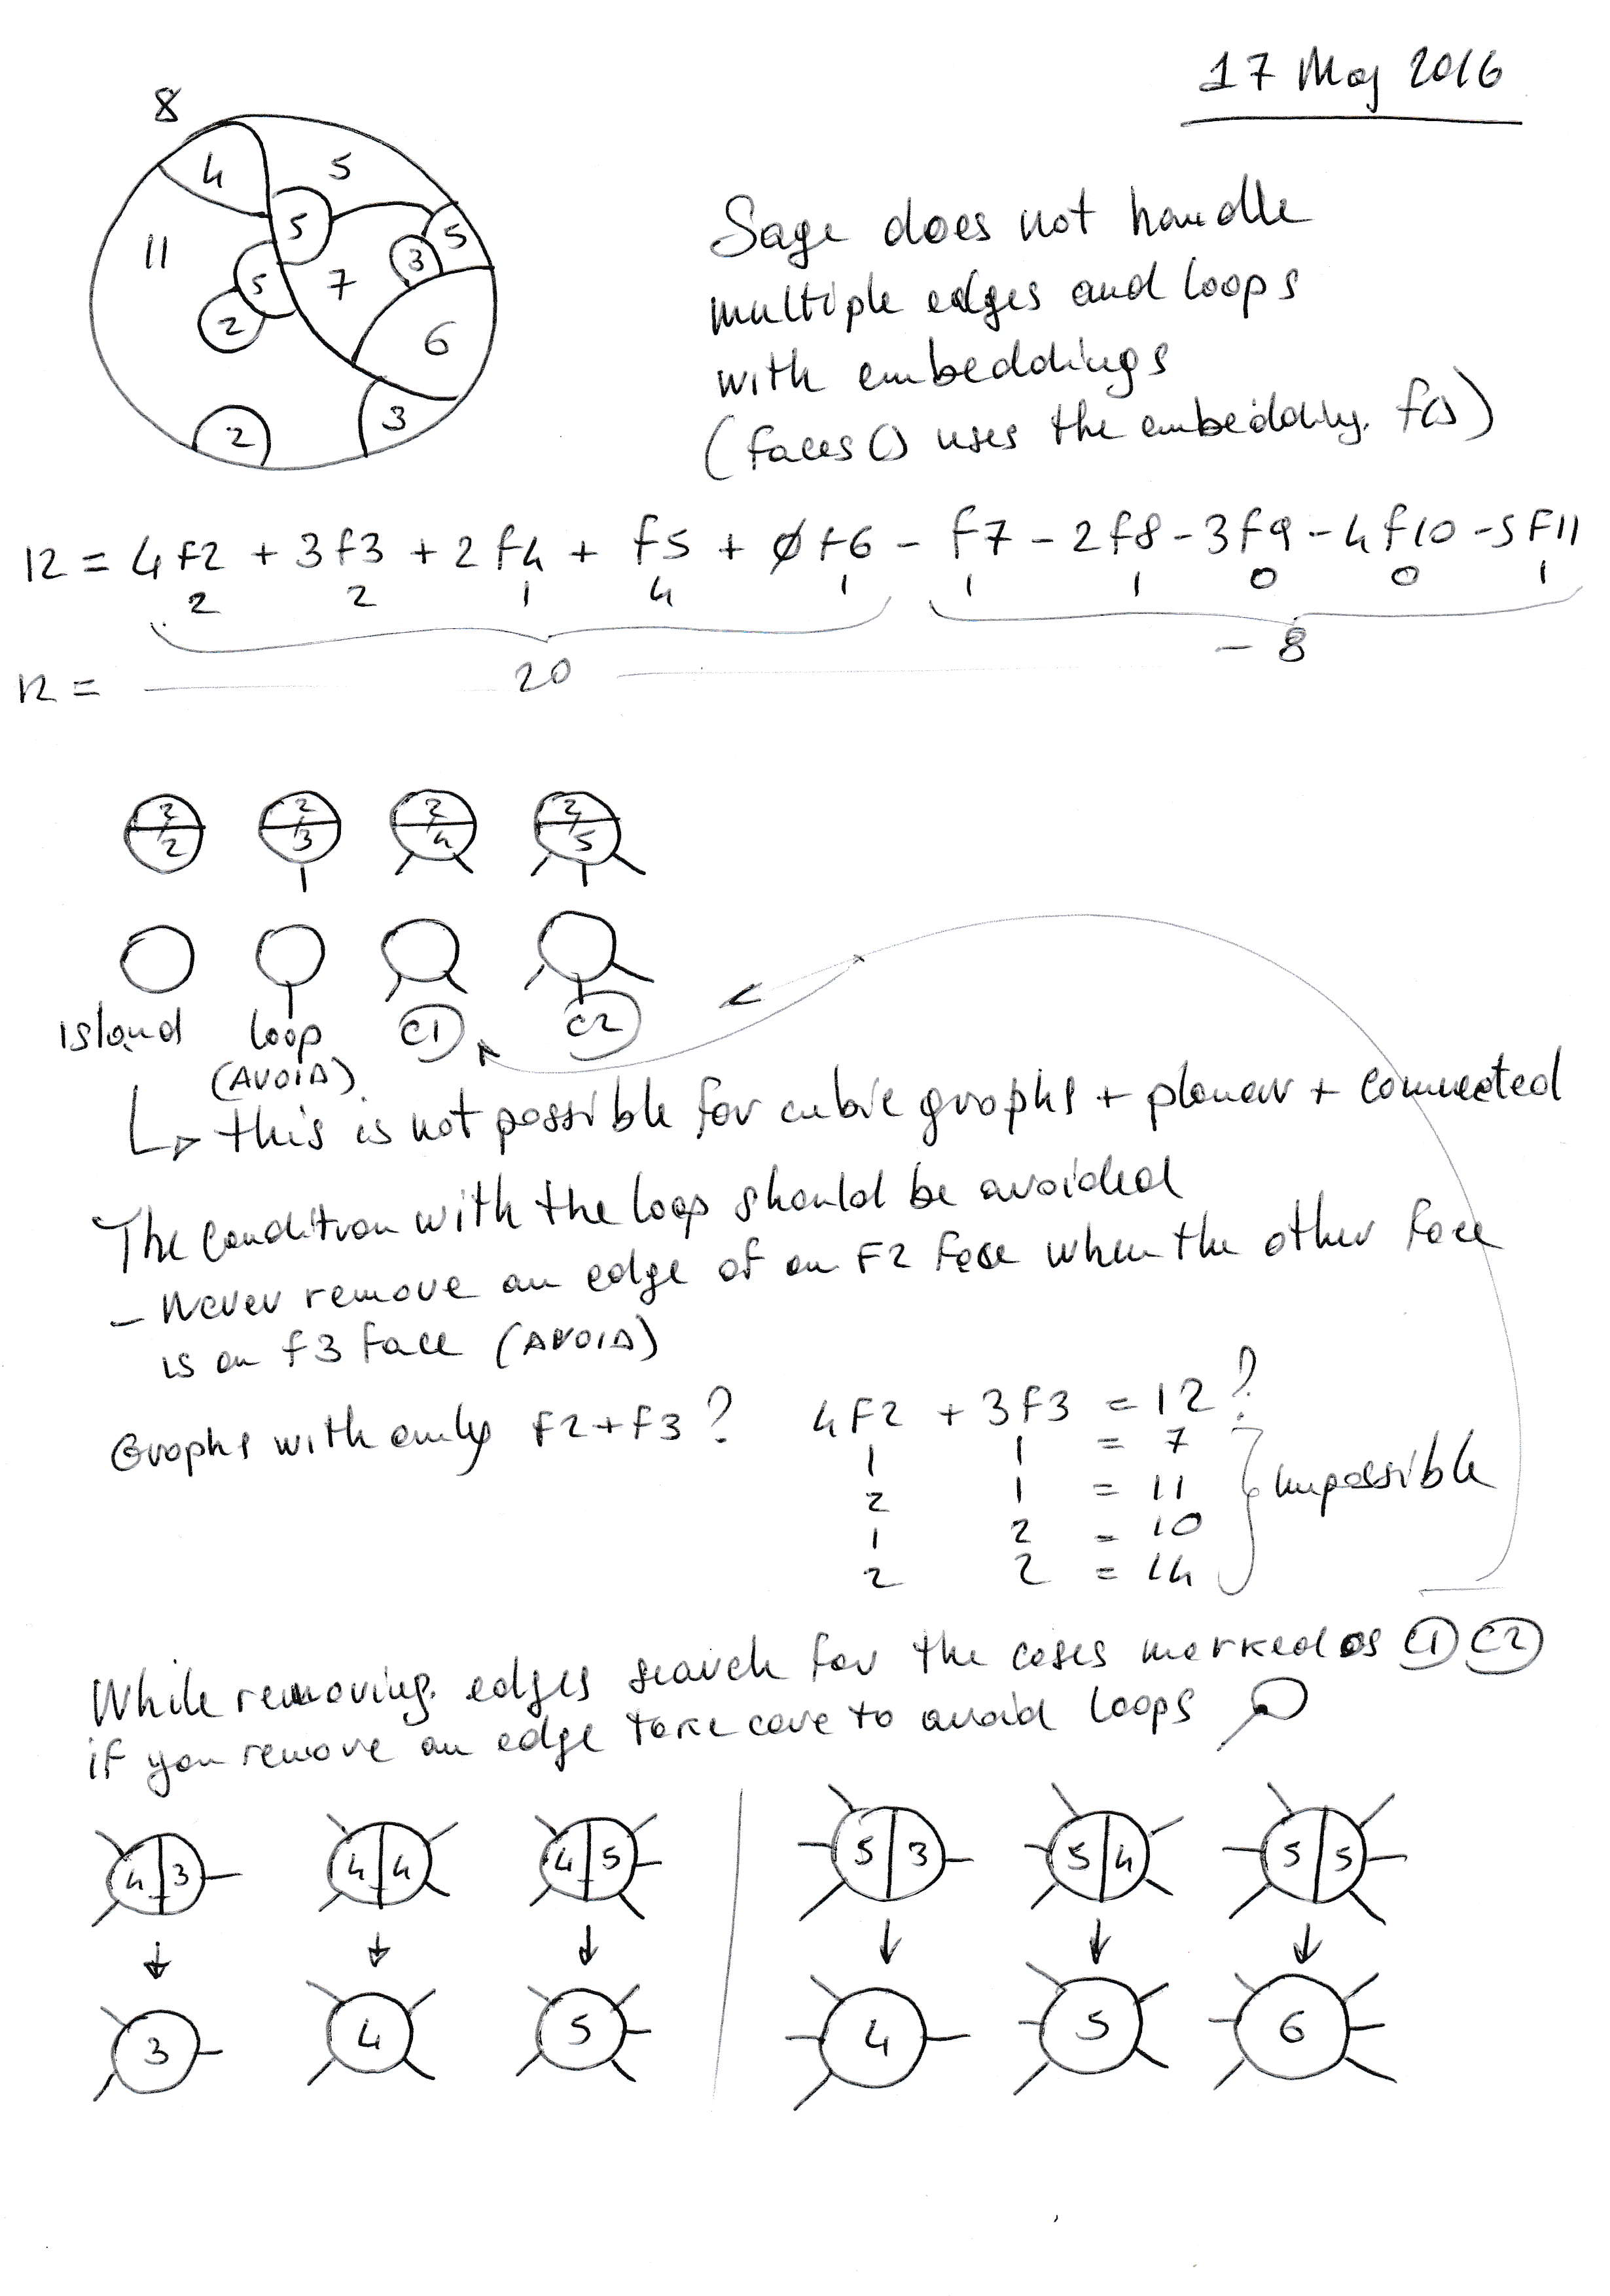 17 May 2016
8
4
5
5
5
11
3
7
5
2
6
3
2
Sage does not handle
multiple edges and loops
with embeddings
(faces() uses the embedding. f())
12 = 4f2 + 3f3 + 2f4 + f5 + 0f6 - f7 - 2f8 - 3f9 - 4f10 - 5f11
2 2 1 4 1 1 1 0 0 1
12 = 20 - 8
2 2 2 2
2 3 4 5
Island loop C1 C2
(AVOID)
this is not possible for cubic graphs + planar + connected
The condition with the loop should be avoided
- Never remove an edge of an F2 face when the other face
is an f3 face (AVOID)
Graphs with only f2+f3? 4F2 + 3F3 = 12?
1 1 = 7
2 1 = 11
1 2 = 10
2 2 = 14
impossible
While removing edges search for the cases marked as C1 C2
if you remove an edge take care to avoid loops
4 3 4 4 4 5 5 3 5 4 5 5
3 4 5 4 5 6